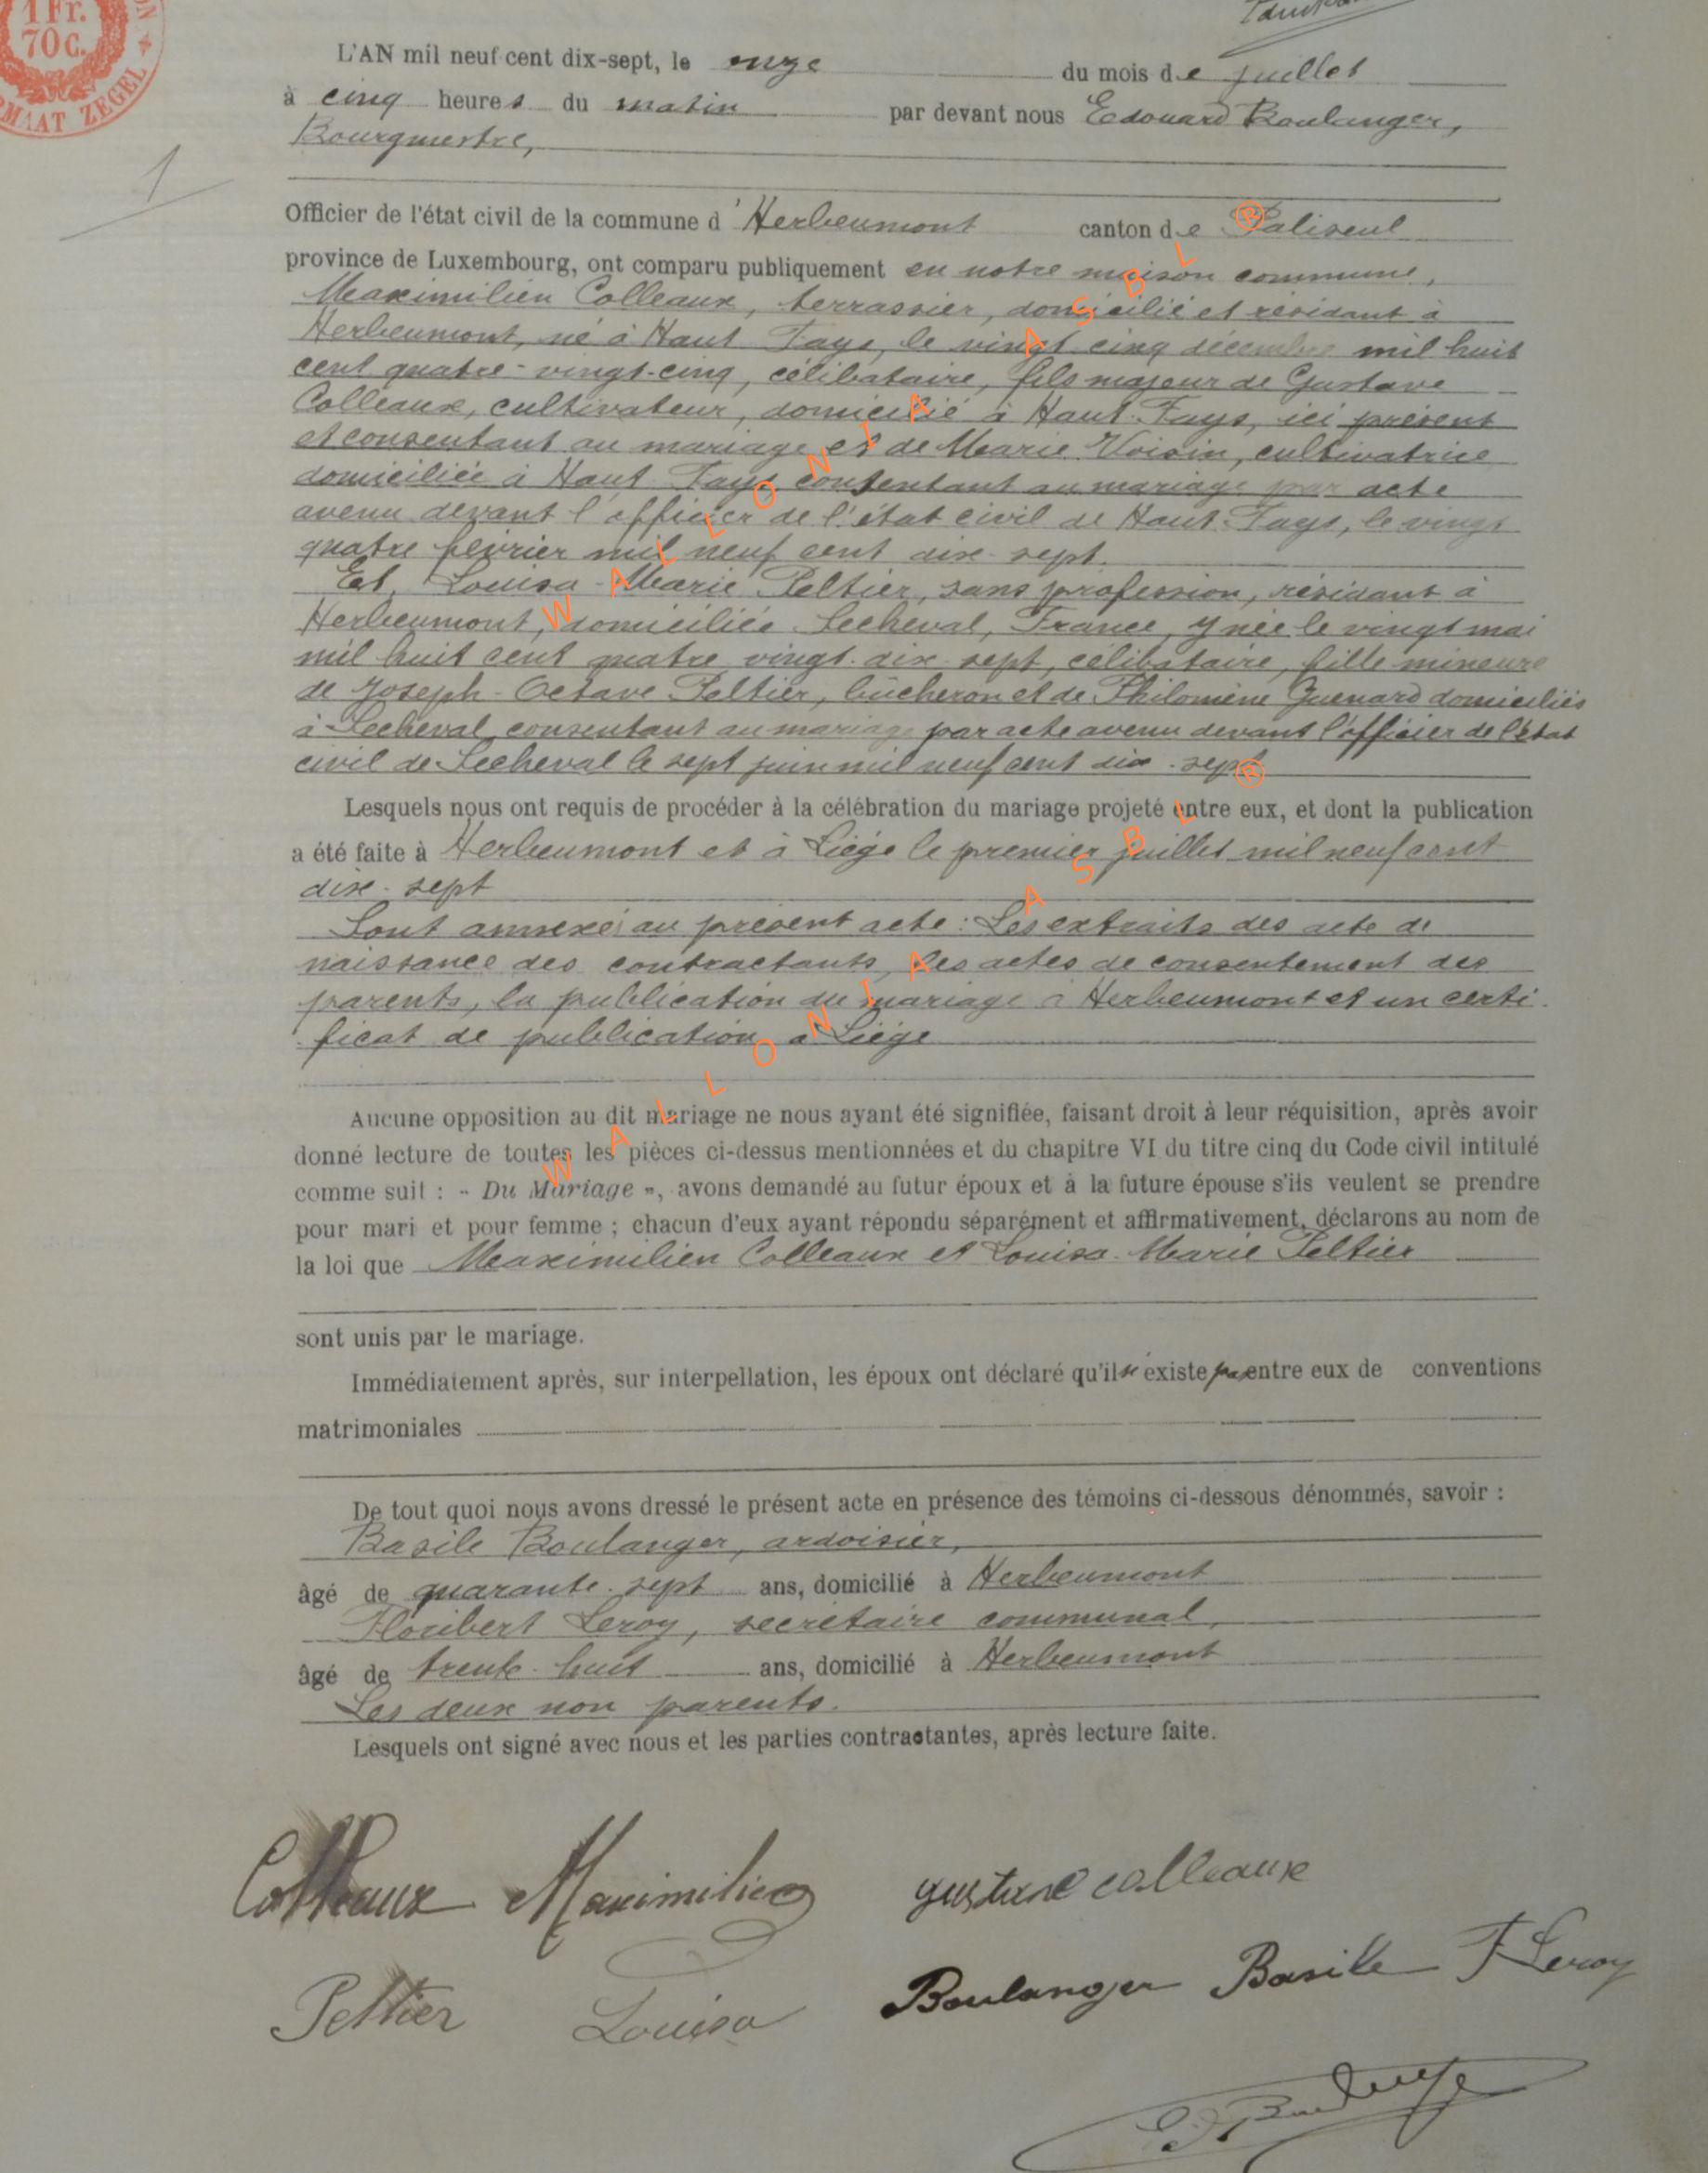 1 Fr.
70 C.
ZEGEL
1
L'AN mil neuf cent dix-sept, le onze du mois de juillet
à cinq heures du matin par devant nous Edouard Boulanger,
Bourgmestre,
Officier de l'état civil de la commune d'Herbeumont canton de Paliseul
province de Luxembourg, ont comparu publiquement en notre maison commune,
Maximilien Colleaux, terrassier, domicilié et résidant à
Herbeumont, né à Haut Fays, le vingt cinq décembre mil huit
cent quatre-vingt-cinq, célibataire, fils majeur de Gustave
Colleaux, cultivateur, domicilié à Haut-Fays, ici présent
et consentant au mariage et de Marie Voisin, cultivatrice
domiciliée à Haut Fays consentant au mariage par acte
avenu devant l'officier de l'état civil de Haut-Fays, le vingt
quatre février mil neuf cent dix-sept.
Et Louisa-Marie Peltier, sans profession, résidant à
Herbeumont, domiciliée Lecheval, France, y née le vingt mai
mil huit cent quatre vingt-dix-sept, célibataire, fille mineure
de Joseph-Octave Peltier, bûcheron et de Philomène Guenard domiciliés
à Lecheval consentant au mariage par acte avenu devant l'officier de l'état
civil de Lecheval le sept juin mil neuf cent dix-sept
Lesquels nous ont requis de procéder à la célébration du mariage projeté entre eux, et dont la publication
a été faite à Herbeumont et à Liége le premier juillet mil neuf cent
dix-sept
Sont annexés au présent acte: Les extraits des acte de
naissance des contractants, les actes de consentement des
parents, la publication du mariage à Herbeumont et un certi-
ficat de publication à Liége
Aucune opposition au dit mariage ne nous ayant été signifiée, faisant droit à leur réquisition, après avoir
donné lecture de toutes les pièces ci-dessus mentionnées et du chapitre VI du titre cinq du Code civil intitulé
comme suit : « Du Mariage », avons demandé au futur époux et à la future épouse s'ils veulent se prendre
pour mari et pour femme ; chacun d'eux ayant répondu séparément et affirmativement, déclarons au nom de
la loi que Maximilien Colleaux et Louisa-Marie Peltier
sont unis par le mariage.
Immédiatement après, sur interpellation, les époux ont déclaré qu'il n'existe pas entre eux de conventions
matrimoniales
De tout quoi nous avons dressé le présent acte en présence des témoins ci-dessous dénommés, savoir :
Basile Boulanger, ardoisier,
âgé de quarante-sept ans, domicilié à Herbeumont
Floribert Leroy, secrétaire communal,
âgé de trente-huit ans, domicilié à Herbeumont
Les deux non parents.
Lesquels ont signé avec nous et les parties contractantes, après lecture faite.
Colleaux Maximilien gustave colleaux
Peltier Louisa Boulanger Basile F Leroy
WALLONIA ASBL ®
WALLONIA ASBL ®